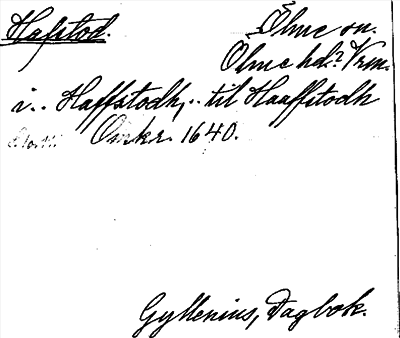 Hafstod. Ölme sn.
Ölme hd. Vrm.
i.. Haffstodh,.. til Haaffstodh
Omkr. 1640.
Gyllenius, Dagbok.